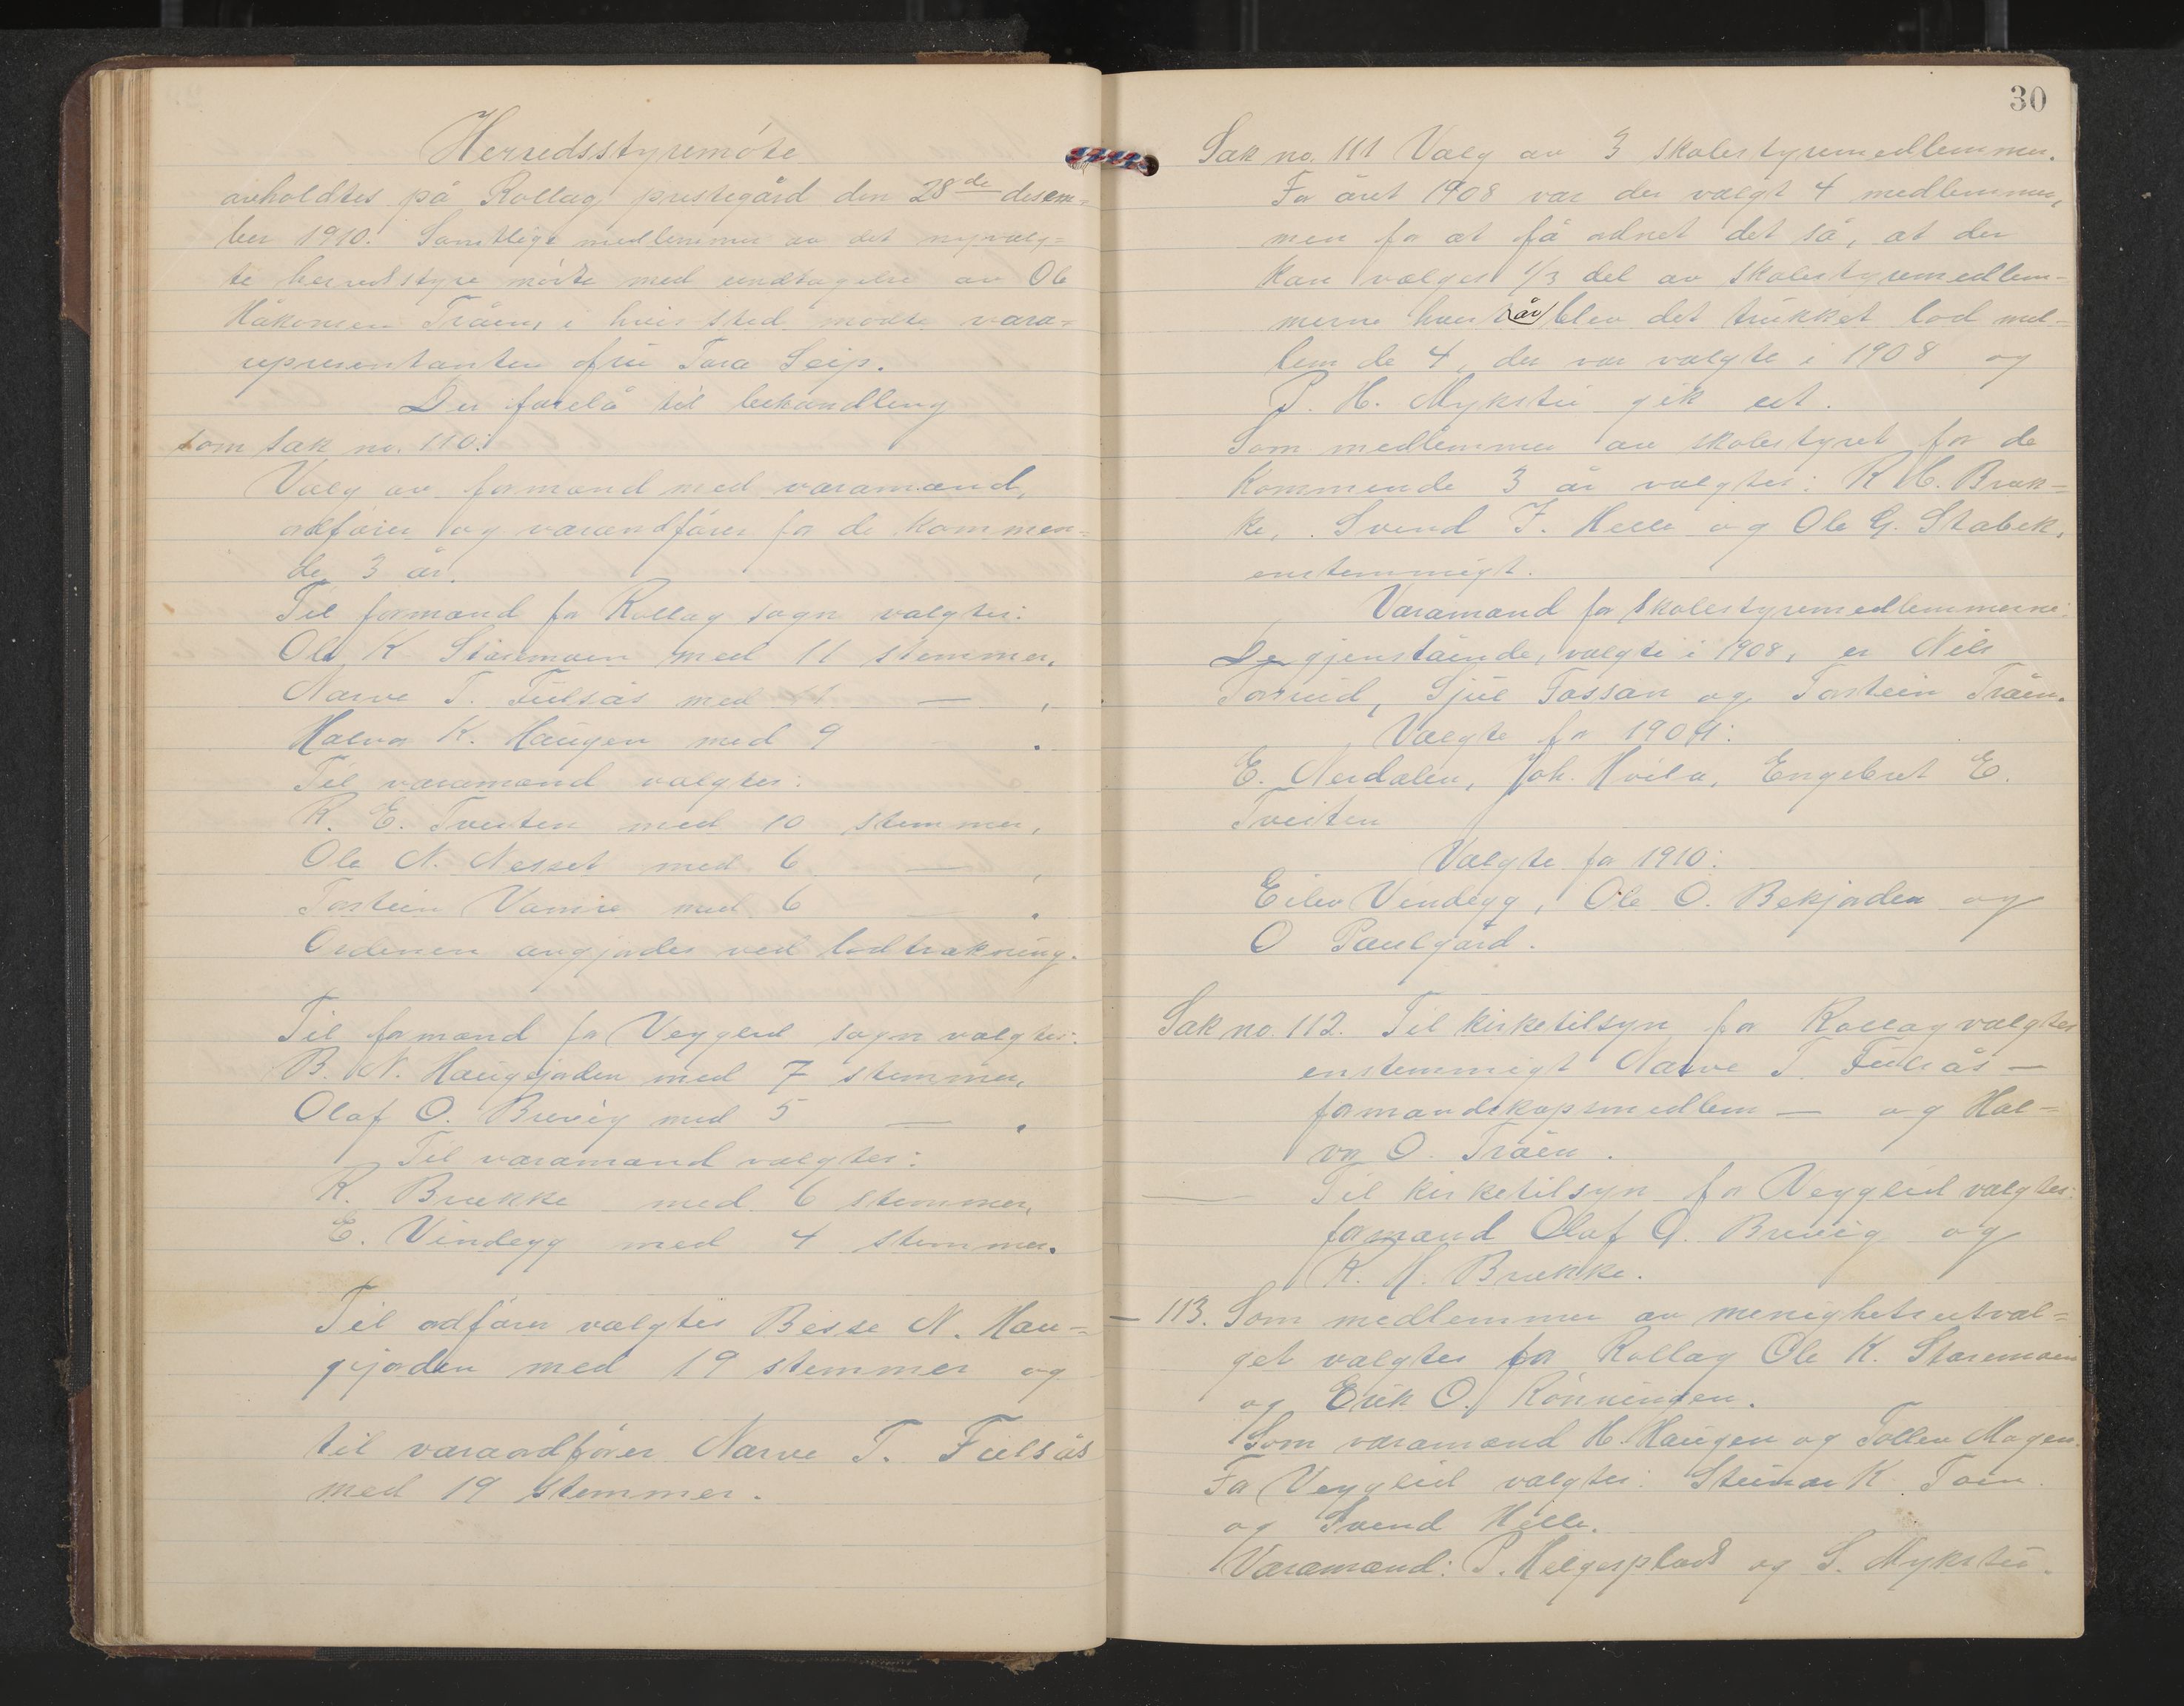 Herredsstyremöte
avholdtes på Rollag prestegård den 28de desem=
ber 1910. Samtlige medlemmer av det nyvalg=
te herredsstyre mödte med undtagelse av Ole
Håkonsen Tråen, i hvis sted mödte vara=
representanten fru Tora Seip.
Der forelå til behandling
som sak no. 110:
Valg av formænd med varamænd,
ordförer og varaordförer for de kommen=
de 3 år.
Til formænd for Rollag sogn valgtes:
Ole K Staremoen med 11 stemmer,
Narve T. Fulsås med 11 — ,
Halvor K. Haugen med 9 .
Til varamænd valgtes:
K. E. Tveiten med 10 stemmer,
Ole N. Nesset med 6 — ,
Torstein Vamre med 6 — .
Ordenen avgjordes ved lodtrækning.
Til formænd for Vegglid sogn valgtes:
B. N. Haugjorden med 7 stemmer,
Olaf O. Brevig med 5 — .
Til varamænd valgtes:
K. Brække med 6 stemmer,
E. Vindegg med 4 stemmer.
Til ordförer valgtes Besse N. Hau=
gjorden med 19 stemmer og
til varaordförer Narve T. Fulsås
med 19 stemmer.
30
Sak no. 111 Valg av 3 skolestyremedlemmer.
For året 1908 var der valgt 4 medlemmer,
men for at få ordnet det så, at der
kan vælges 1/3 del av skolestyremedlem=
merne hvert år blev det trukket lod mel=
lem de 4, der var valgte i 1908 og
P. H. Mykstu gik ut.
Som medlemmer av skolestyret for de
kommende 3 år valgtes: K H. Bræk=
ke, Svend J. Helle og Ole G. Stabek,
enstemmigt.
Varamænd for skolestyremedlemmerne:
De gjenstående, valgte i 1908, er Nils
Torrud, Sjul Fossan og Torstein Tråen.
Valgte for 1909:
E. Nerdalen, Joh. Hvila, Engebret E.
Tveiten
Valgte for 1910:
Eilev Vindegg, Ole O. Bekjorden og
O Paulgård.
Sak no. 112. Til kirketilsyn for Rollag valgtes
enstemmigt Narve T. Fulsås —
formandskapsmedlem — og Hal=
vor O. Tråen.
— Til kirketilsyn for Vegglid valgtes:
formand Olaf O. Brevig og
K. H. Brække.
— 113. Som medlemmer av menighetsutval=
get valgtes for Rollag Ole K. Staremoen
og Erik O. Rönningen.
Som varamænd H. Haugen og Tollev Mogen.
For Vegglid valgtes: Steinar K. Toen
og Svend Helle.
Varamænd: P. Helgesplads og S. Mykstu.